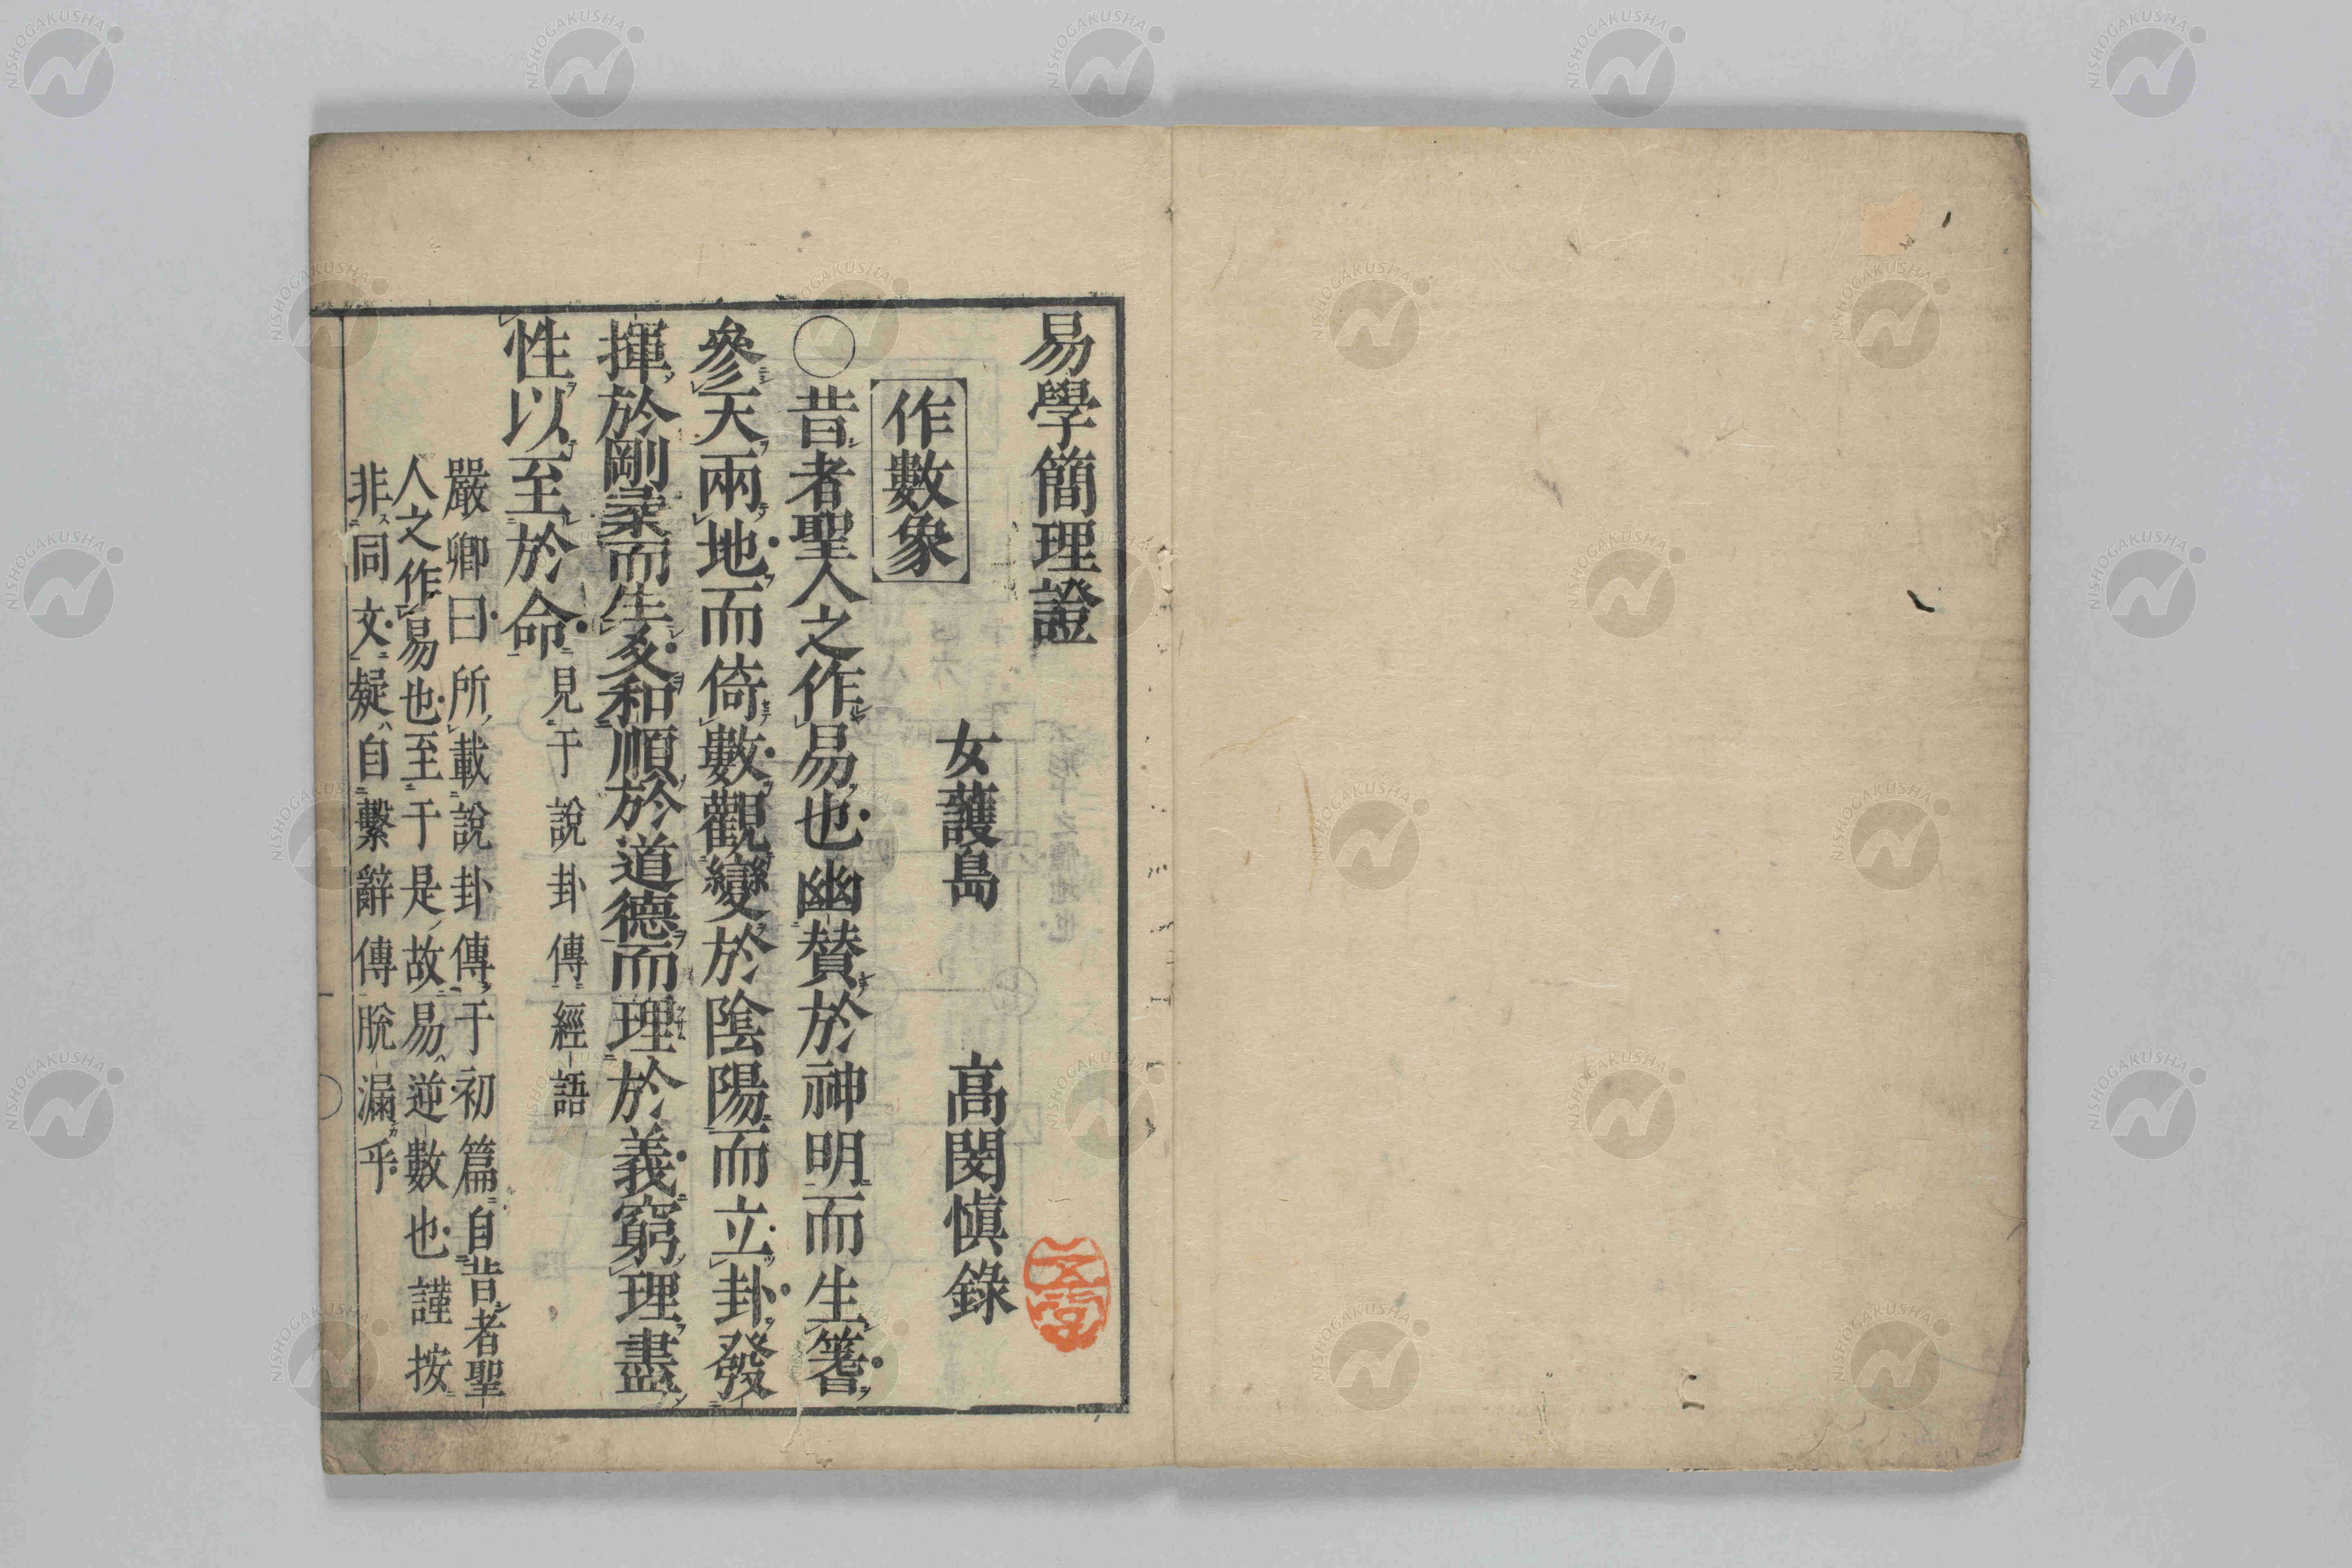 易學簡理證
女護島　高閔愼錄
作數象
○昔者聖人之作易也幽賛於神明而生蓍
參天兩地而倚數觀變於陰陽而立卦發
揮於剛柔而生爻和順於道德而理於義窮理盡
性以至於命見于說卦傳經語
嚴卿曰所載說卦傳于初篇自昔者聖
人之作易也至于是故易逆數也謹按
非同文疑自繫辭傳脫漏乎
NISHOGAKUSHA